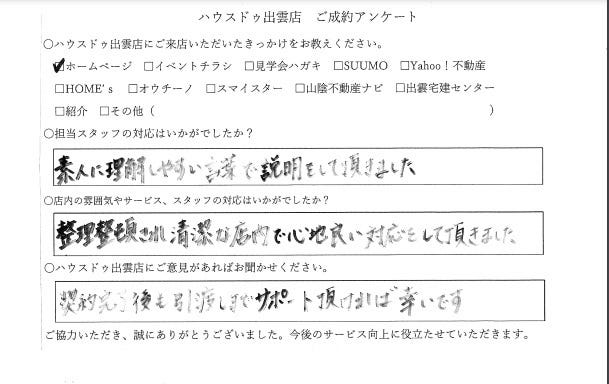 ハウスドゥ出雲店 ご成約アンケート
○ハウスドゥ出雲店にご来店いただいたきっかけをお教えください。
☑ホームページ □イベントチラシ □見学会ハガキ □SUUMO □Yahoo！不動産
□HOME's □オウチーノ □スマイスター □山陰不動産ナビ □出雲宅建センター
□紹介 □その他（ ）
○担当スタッフの対応はいかがでしたか？
素人に理解しやすい言葉で説明をして頂きました
○店内の雰囲気やサービス、スタッフの対応はいかがでしたか？
整理整頓され清潔な店内で心地良い対応をして頂きました
○ハウスドゥ出雲店にご意見があればお聞かせください。
契約完了後も引渡しまでサポート頂ければ幸いです
ご協力いただき、誠にありがとうございました。今後のサービス向上に役立たせていただきます。